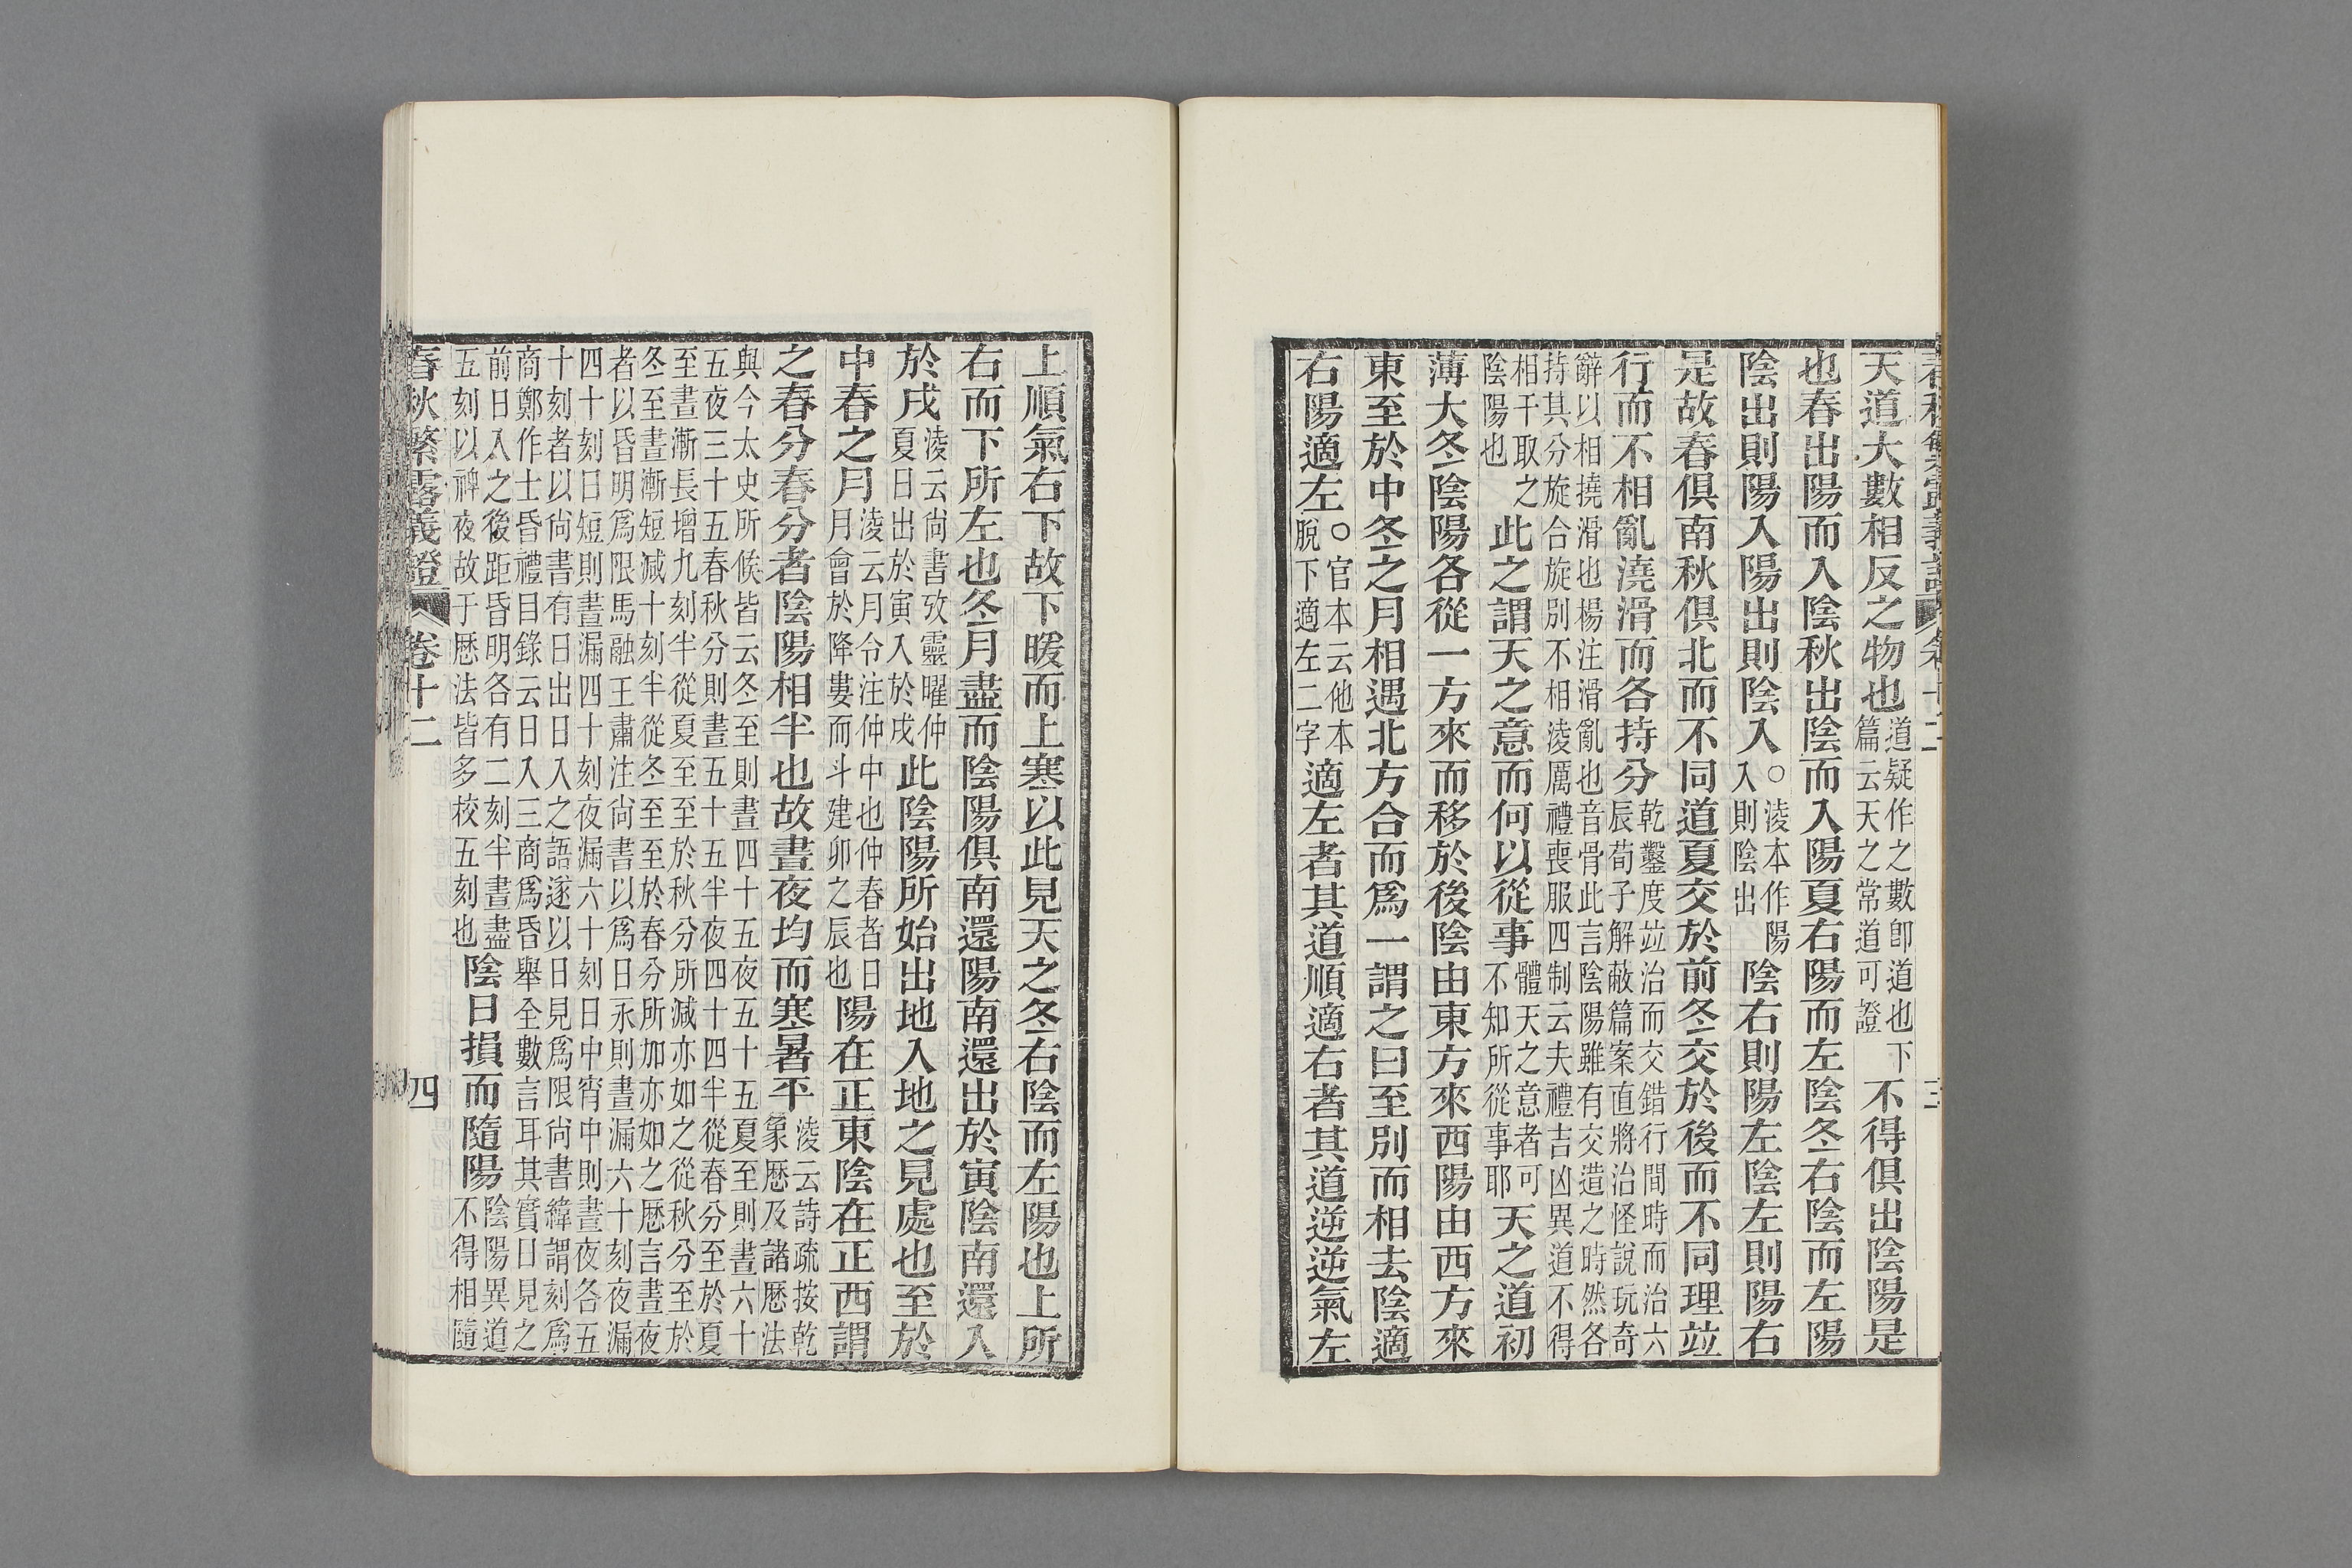 春秋繁露義證 卷十二 三
天道大數相反之物也道疑作之數卽道也下篇云天之常道可證不得俱出陰陽是
也春出陽而入陰秋出陰而入陽夏右陽而左陰冬右陰而左陽
陰出則陽入陽出則陰入○淩本作陽入則陰出陰右則陽左陰左則陽右
是故春俱南秋俱北而不同道夏交於前冬交於後而不同理竝
行而不相亂澆滑而各持分乾鑿度竝治而交錯行間時而治六辰荀子解蔽篇案直將治怪說玩奇
辭以相撓滑也楊注滑亂也音骨此言陰陽雖有交造之時然各
持其分旋合旋別不相淩厲禮喪服四制云夫禮吉凶異道不得
相干取之陰陽也此之謂天之意而何以從事體天之意者可不知所從事耶天之道初
薄大冬陰陽各從一方來而移於後陰由東方來西陽由西方來
東至於中冬之月相遇北方合而爲一謂之曰至別而相去陰適
右陽適左○官本云他本脫下適左二字適左者其道順適右者其道逆逆氣左
上順氣右下故下暖而上寒以此見天之冬右陰而左陽也上所
右而下所左也冬月盡而陰陽俱南還陽南還出於寅陰南還入
於戌淩云尙書攷靈曜仲夏日出於寅入於戌此陰陽所始出地入地之見處也至於
中春之月淩云月令注仲中也仲春者日月會於降婁而斗建卯之辰也陽在正東陰在正西謂
之春分春分者陰陽相半也故晝夜均而寒暑平淩云詩疏按乾象厯及諸厯法
與今太史所候皆云冬至則晝四十五夜五十五夏至則晝六十
五夜三十五春秋分則晝五十五半夜四十四半從春分至於夏
至晝漸長增九刻半從夏至至於秋分所減亦如之從秋分至於
冬至晝漸短减十刻半從冬至至於春分所加亦如之厯言晝夜
者以昏明爲限馬融王肅注尙書以爲日永則晝漏六十刻夜漏
四十刻日短則晝漏四十刻夜漏六十刻日中宵中則晝夜各五
十刻者以尙書有日出日入之語遂以日見爲限尙書緯謂刻爲
商鄭作士昏禮目錄云日入三商爲昏舉全數言耳其實日見之
前日入之後距昏明各有二刻半晝盡五刻以裨夜故于厯法皆多校五刻也陰日損而隨陽陰陽異道不得相隨
春秋繁露義證 卷十二 四